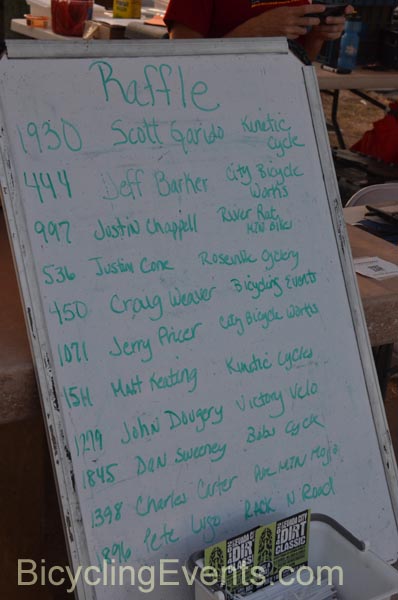 Raffle
1930 Scott Garido Kinetic Cycle
444 Jeff Barker City Bicycle Works
997 Justin Chappell River Rat
536 Justin Cone Roseville Cyclery
450 Craig Weaver Bicycling Events
1071 Jerry Pricer City Bicycle Works
1511 Matt Keating Kinetic Cycles
1279 John Dougery Victory Velo
1845 Dan Sweeney Bobs Cycle
1398 Charles Carter MTN Mojo
1896 Pete Lugo RACK N Road
FOLSOM CITY
DIRT
CLASSIC
BicyclingEvents.com